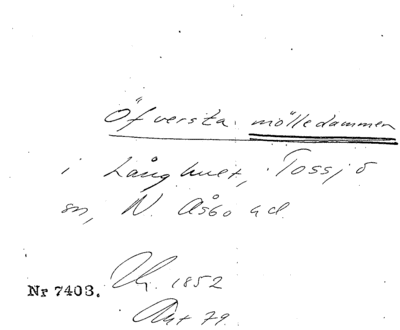 Öfversta mölledammen
i Långhult, Tossjö
sn, N. Åsbo hd.
Lk. 1852
Akt 79.
Nr 7403.